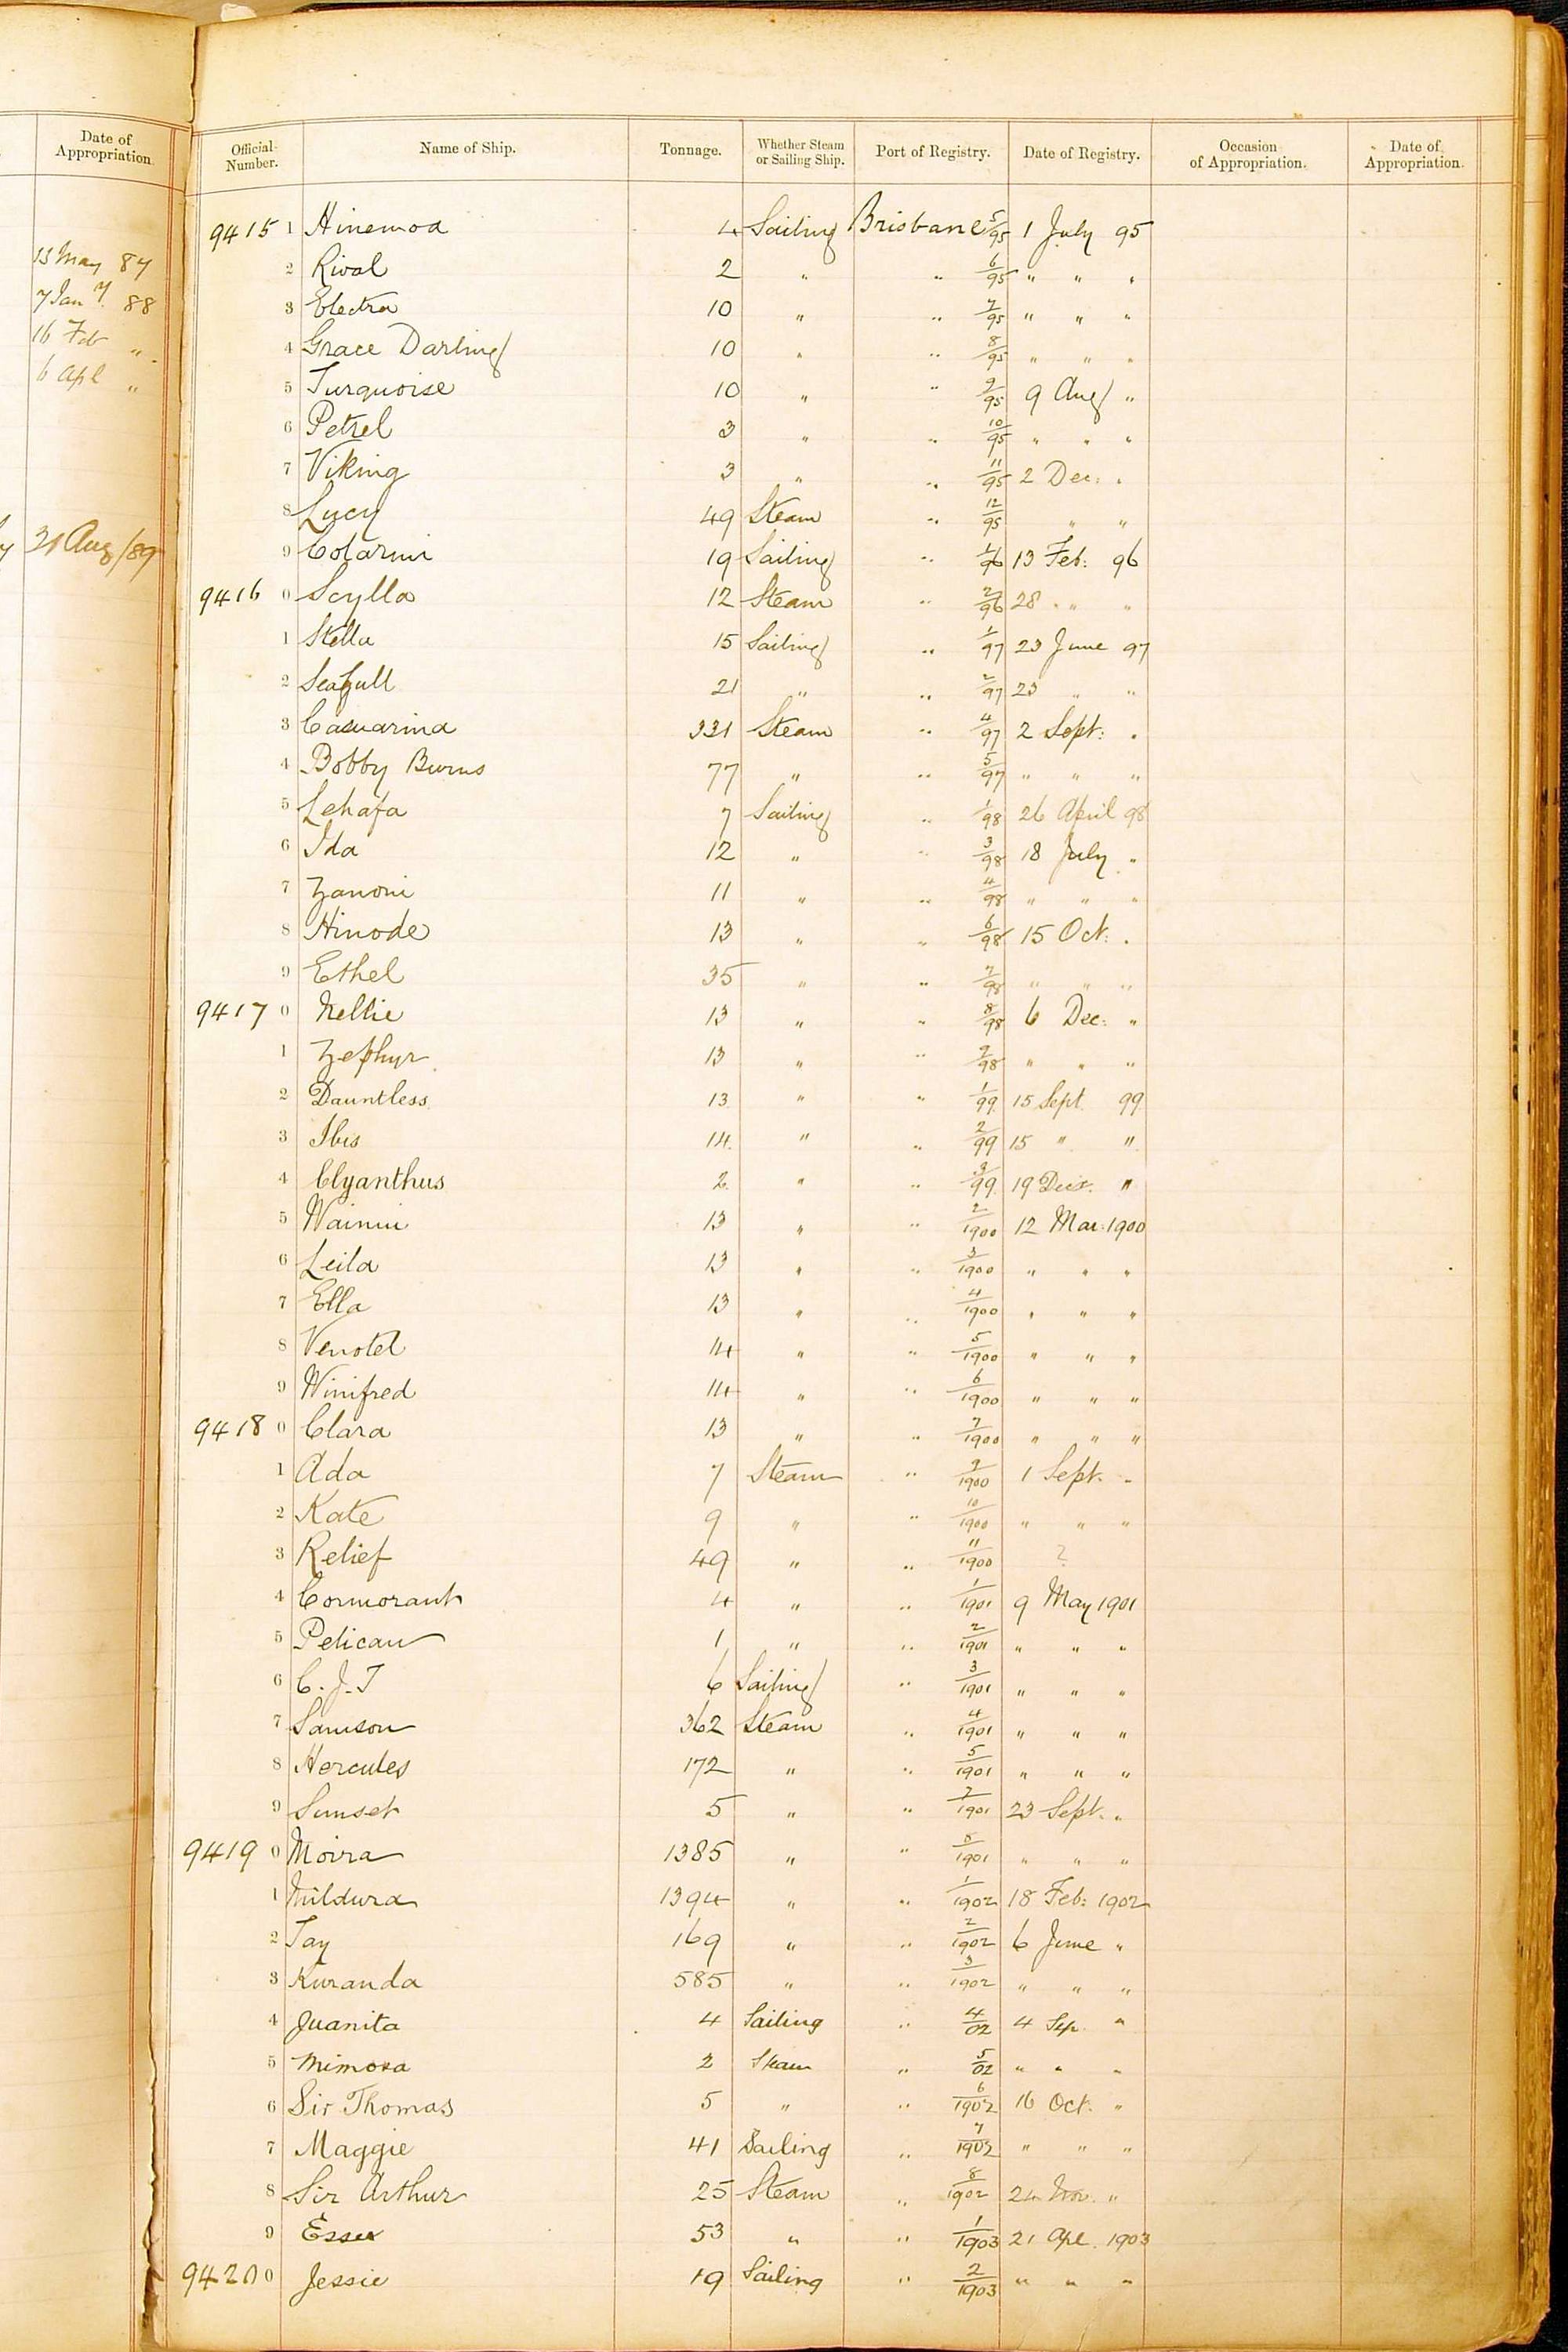 Date of Appropriation.
13 May 87
7 Jan y 88
16 Feb "
6 Apl "
31 Aug/89
Official Number. Name of Ship. Tonnage. Whether Steam or Sailing Ship. Port of Registry. Date of Registry. Occasion of Appropriation. Date of Appropriation.
9415 1 Hinemoa 4 Sailing Brisbane 5/95 1 July 95
2 Rival 2 " " 6/95 " " "
3 Electra 10 " " 7/95 " " "
4 Grace Darling 10 " " 8/95 " " "
5 Turquoise 10 " " 9/95 9 Aug "
6 Petrel 3 " " 10/95 " " "
7 Viking 3 " " 11/95 2 Dec: "
8 Lucy 49 Steam " 12/95 " "
9 19 Sailing " 1/96 13 Feb: 96
9416 0 Scylla 12 Steam " 2/96 28 " "
1 Stella 15 Sailing " 1/97 23 June 97
2 Seagull 21 " " 2/97 23 " "
3 Casuarina 331 Steam " 4/97 2 Sept: "
4 Bobby Burns 77 " " 5/97 " " "
5 Lehafa 7 Sailing " 1/98 26 April 98
6 Ida 12 " " 3/98 18 July "
7 Zanoni 11 " " 4/98 " " "
8 Hinode 13 " " 6/98 15 Oct: "
9 Ethel 35 " " 7/98 " " "
9417 0 Nellie 13 " " 8/98 6 Dec: "
1 Zephyr 13 " " 9/98 " " "
2 Dauntless 13 " " 1/99 15 Sept 99
3 Ibis 14 " " 2/99 15 " "
4 Clyanthus 2 " " 3/99 19 Decr. "
5 Wainui 13 " " 2/1900 12 Mar: 1900
6 Leila 13 " " 3/1900 " " "
7 Ella 13 " " 4/1900 " " "
8 Venotel 14 " " 5/1900 " " "
9 Winifred 14 " " 6/1900 " " "
9418 0 Clara 13 " " 7/1900 " " "
1 Ada 7 Steam " 9/1900 1 Sept. "
2 Kate 9 " " 10/1900 " " "
3 Relief 49 " " 11/1900 ?
4 Cormorant 4 " " 1/1901 9 May 1901
5 Pelican 1 " " 2/1901 " " "
6 C. J. T 6 Sailing " 3/1901 " " "
7 Samson 362 Steam " 4/1901 " " "
8 Hercules 172 " " 5/1901 " " "
9 Sunset 5 " " 7/1901 23 Sept. "
9419 0 Moira 1385 " " 8/1901 " " "
1 Mildura 1394 " " 1/1902 18 Feb: 1902
2 Tay 169 " " 2/1902 6 June "
3 Kuranda 585 " " 3/1902 " " "
4 Juanita 4 Sailing " 4/02 4 Sep. "
5 Mimosa 2 Steam " 5/02 " " "
6 Sir Thomas 5 " " 6/1902 16 Oct. "
7 Maggie 41 Sailing " 7/1902 " " "
8 Sir Arthur 25 Steam " 8/1902 24 Nov. "
9 Essex 53 " " 1/1903 21 Apl. 1903
9420 0 Jessie 19 Sailing " 2/1903 " " "